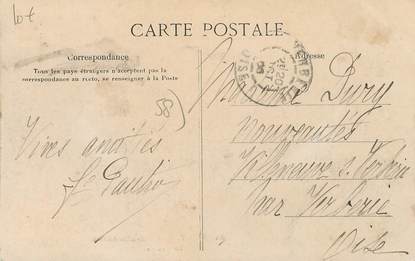 10 €
CARTE POSTALE
Correspondance
Adresse
Tous les pays étrangers n'acceptent pas la
correspondance au recto, se renseigner à la Poste
58
OISE
Vives amitiés
Madame Dury
nouveautés
Villeneuve s. Verberie
par Verberie
Oise